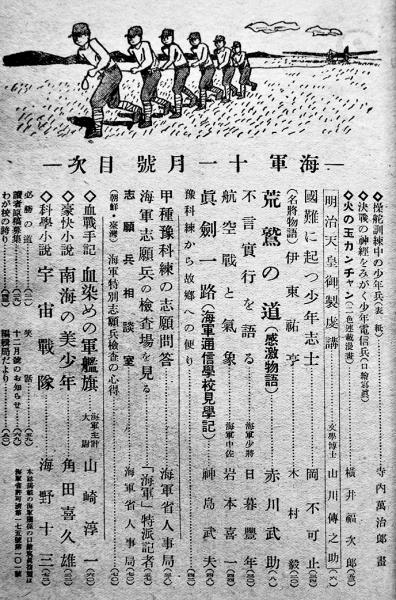 海軍 十一月號 目次
◇操舵訓練中の少年兵（表紙）……寺內萬治郎畫
◇決戰の神經をみがく少年電信兵（口繪寫眞）
◇火の玉カンチャン（二色連載漫畫）……橫井福次郎
明治天皇御製虔講……文學博士 山川傳之助
國難に起つ少年志士……岡不可止
（名將物語）伊東祐亨……木村毅
荒鷲の道（感激物語）……赤川武助
不言實行を語る……海軍少將 日暮豐年
航空戰と氣象……海軍中佐 岩本喜一
眞劍一路（海軍通信學校見學記）……神島武夫
豫科練から故鄉への便り
甲種豫科練の志願問答……海軍省人事局
海軍志願兵の檢査場を見る……「海軍」特派記者
志願兵相談室……海軍省人事局
（朝鮮・臺灣）海軍特別志願兵檢査の心得
血戰手記 血染めの軍艦旗……海軍主計大尉 山崎淳一
豪快小說 南海の美少年……角田喜久雄
科學小說 宇宙戰隊……海野十三
必勝の道
讀者原稿募集
わが校の誇り
笑話
十二月號のお知らせ
編輯局だより